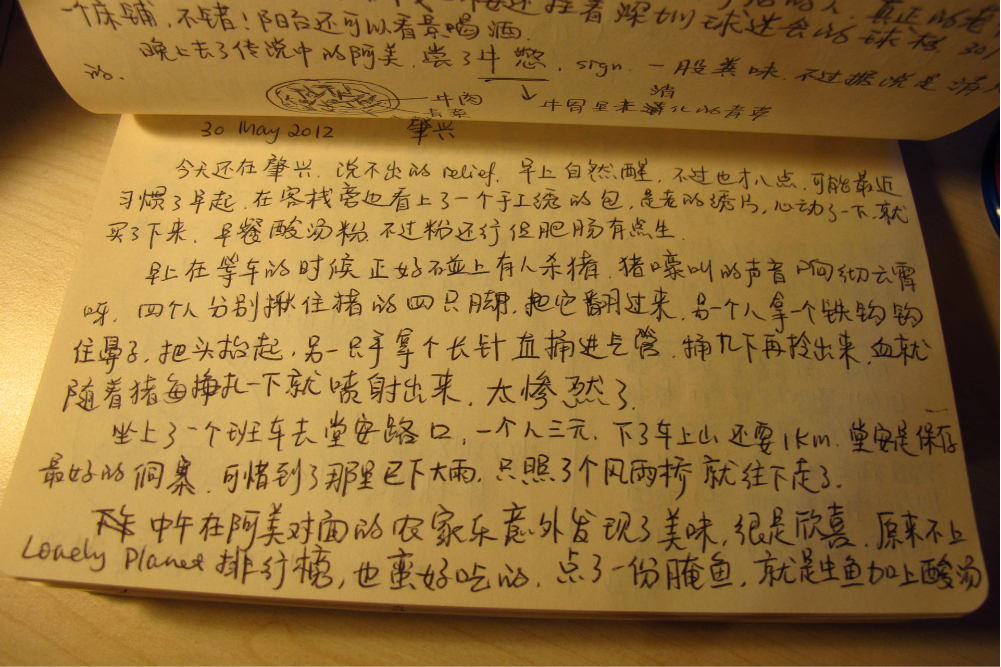 着深圳球迷会的球
一个床铺，不错！阳台还可以看景喝酒.
晚上去了传说中的阿美，尝了牛憋. sign. 一股粪味. 不过据说是消
的.
牛肉
青草
消
牛胃里未消化的青草
30 May 2012 肇兴
今天还在肇兴. 说不出的 relief. 早上自然醒. 不过也才八点. 可能最近
习惯了早起. 在客栈旁边看上了一个手工绣的包，是老的绣片，心动了一下. 就
买了下来. 早餐酸汤粉. 不过粉还行但肥肠有点生.
早上在等车的时候正好碰上有人杀猪. 猪嚎叫的声音响彻云霄
呀. 四个人分别揪住猪的四只脚，把它翻过来. 另一个人拿一个铁钩钩
住鼻子，把头拉起，另一只手拿个长针直捅进气管. 捅几下再拎出来. 血就
随着猪每挣扎一下就喷射出来. 太惨烈了.
坐上了一个班车去堂安路口，一个人三元. 下了车上山还要1km. 堂安是保存
最好的侗寨. 可惜到了那里已下大雨. 只照了个风雨桥就往下走了.
中午在阿美对面的农家乐意外发现了美味，很是欣喜. 原来不上
Lonely Planet 排行榜，也蛮好吃的. 点了一份腌鱼，就是生鱼加上酸汤